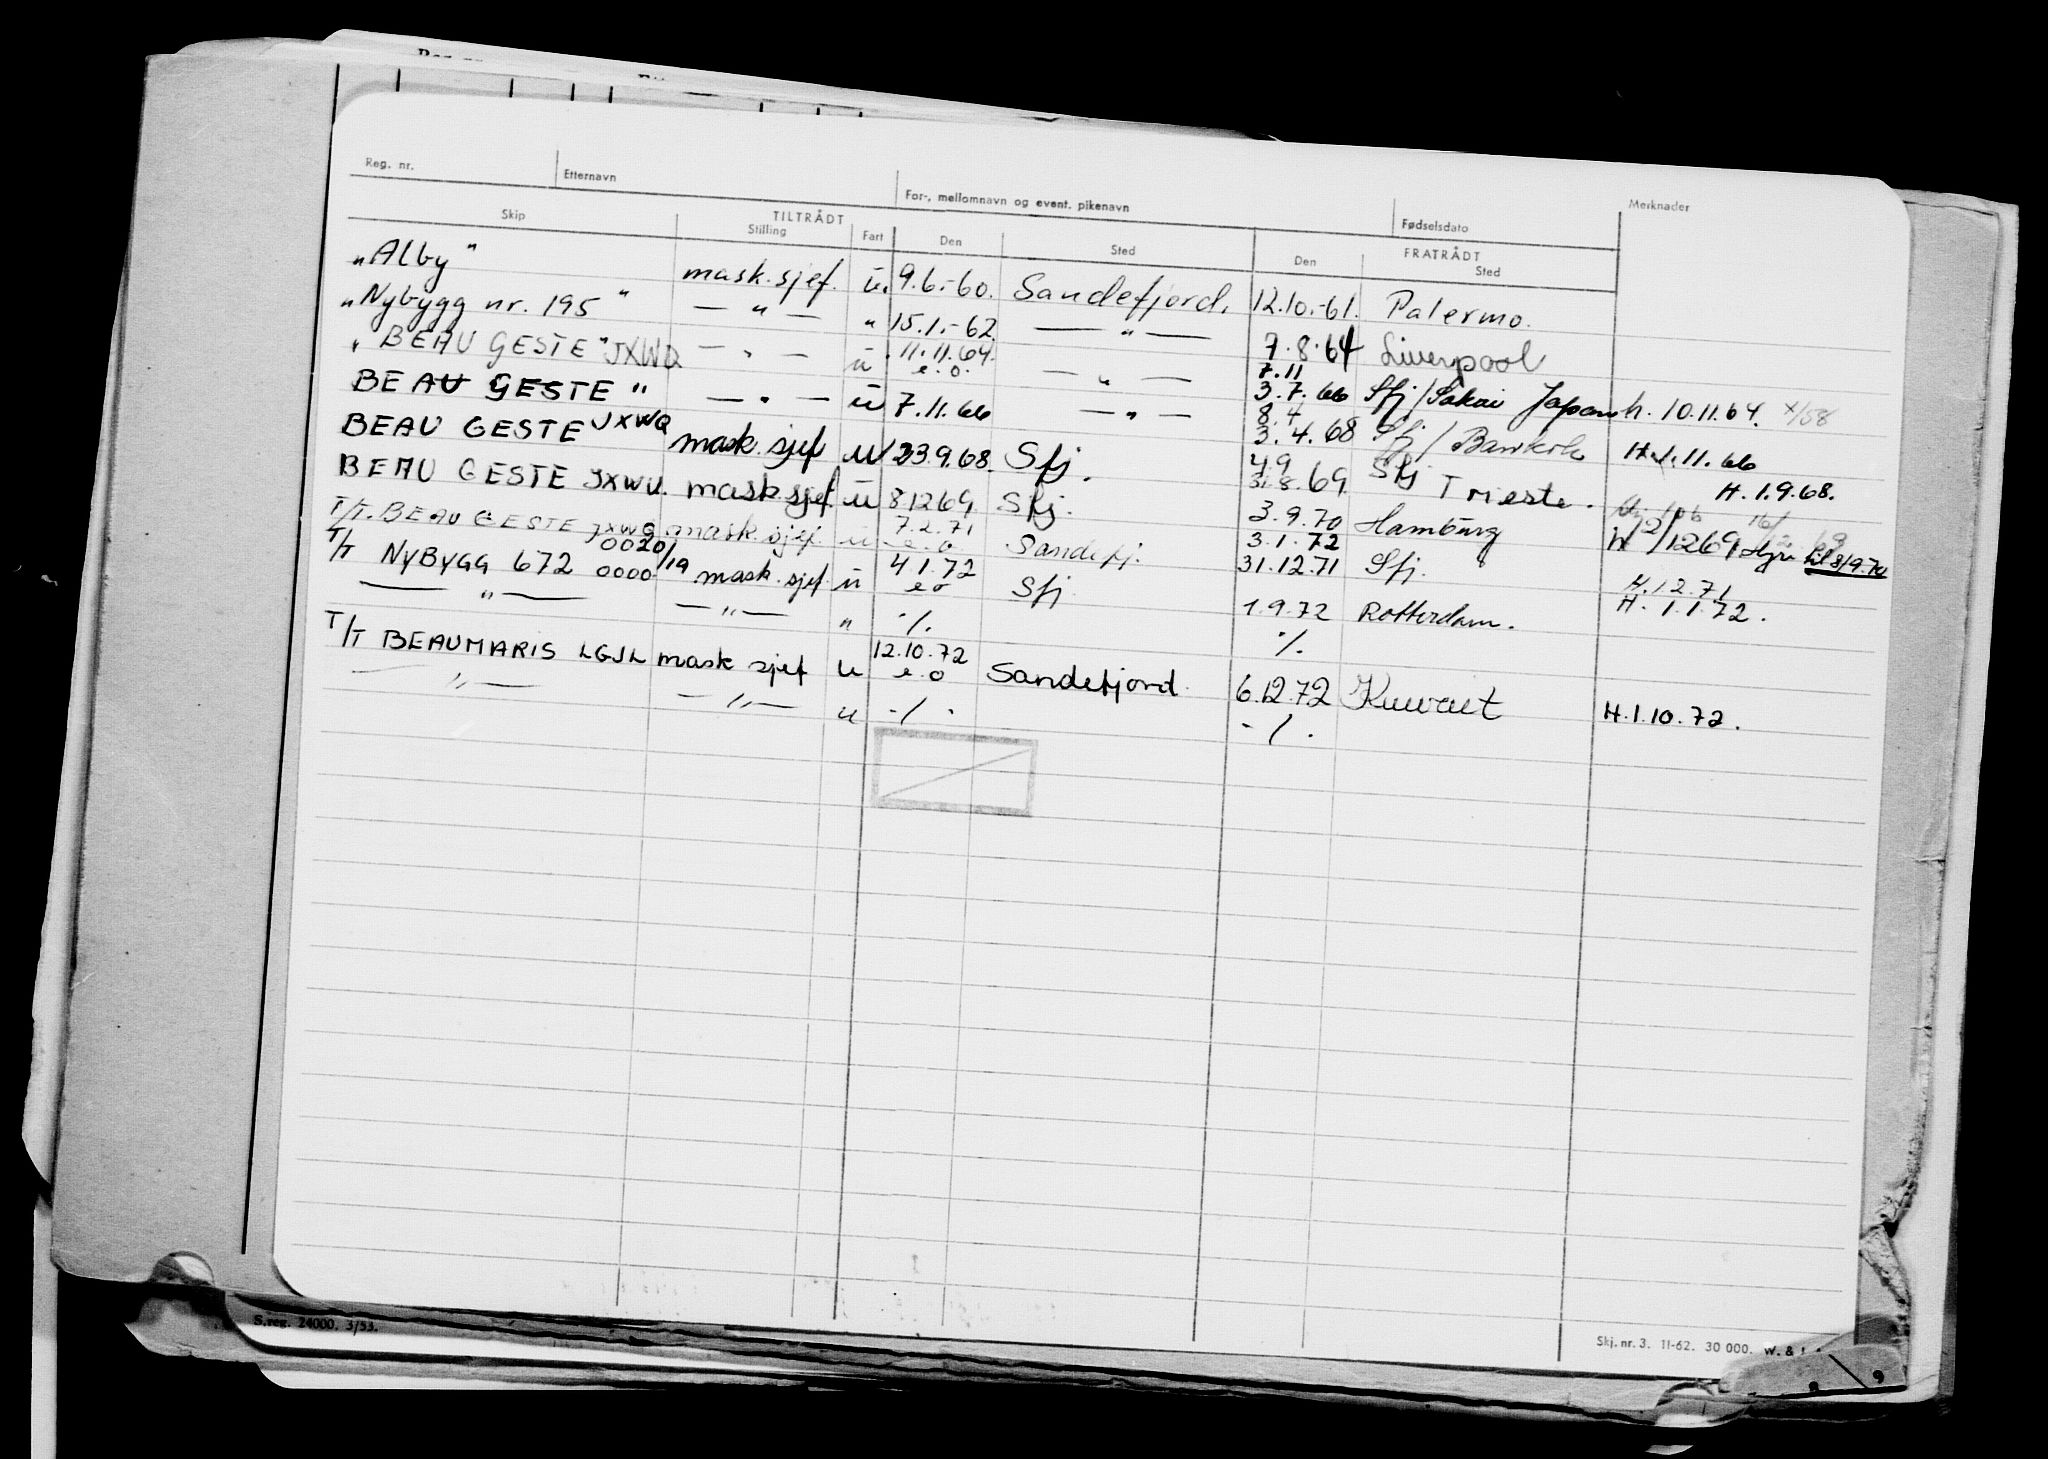 Reg. nr. Etternavn For-, mellomnavn og event. pikenavn Fødselsdato Merknader
TILTRÅDT FRATRÅDT
Skip Stilling Fart Den Sted Den Sted
"Alby" mask.sjef. u. 9.6.-60. Sandefjord. 12.10.-61. Palermo.
"Nybygg nr. 195" — " — " 15.1.-62. — " — 7.8.64 Liverpool
"BEAU GESTE" JXWQ — " — u 11.11.64. e.o. — " — 7.11 3.7.66 Sfj/Sakai Japan h. 10.11.64.
BEAU GESTE " — " — u 7.11.66 — " — 8.4 3.4.68 Sfj/ H.1.11.66
BEAU GESTE JXWQ mask.sjef u 23.9.68. Sfj. 4.9 31.8.69. Sfj Trieste. H.1.9.68.
BEAU GESTE JXWQ. mask.sjef. u 81269 Sfj. 3.9.70 Hamburg
T/T. BEAU GESTE JXWQ mask.sjef u 7.2.71 e.o Sandefj. 3.1.72 31.12.71 Sfj. H.1.2.71
T/T NYBYGG 672 0020/19 0000 mask.sjef. u 4.1.72 e o Sfj 1.9.72 Rotterdam. H. 1.1.72.
— " — — " — " ./. ./.
T/T BEAUMARIS LGJL mask sjef u 12.10.72 e.o Sandefjord. 6.12.72 Kuwait H.1.10.72.
— " — — " — u ./. ./.
S.reg. 24000. 3/53.
Skj. nr. 3. 11-62. 30 000. W. &